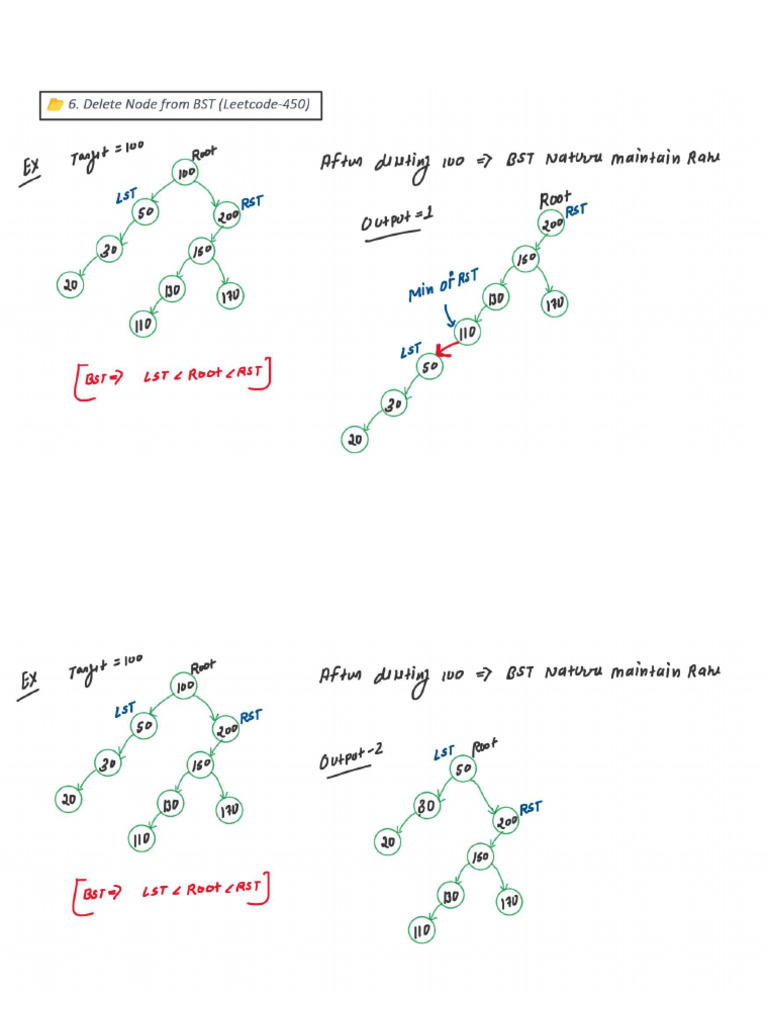 6. Delete Node from BST (Leetcode-450)
Ex Target = 100 Root
100
LST RST
50 200
30 150
20 130 170
110
[BST => LST < Root < RST]
After deleting 100 => BST Nature maintain Rahe
Output = 1
Root
200 RST
150
Min of RST 130 170
110
LST
50
30
20
Ex Target = 100 Root
100
LST RST
50 200
30 150
20 130 170
110
[BST => LST < Root < RST]
After deleting 100 => BST Nature maintain Rahe
Output - 2
LST Root
50
30 RST
20 200
150
130 170
110